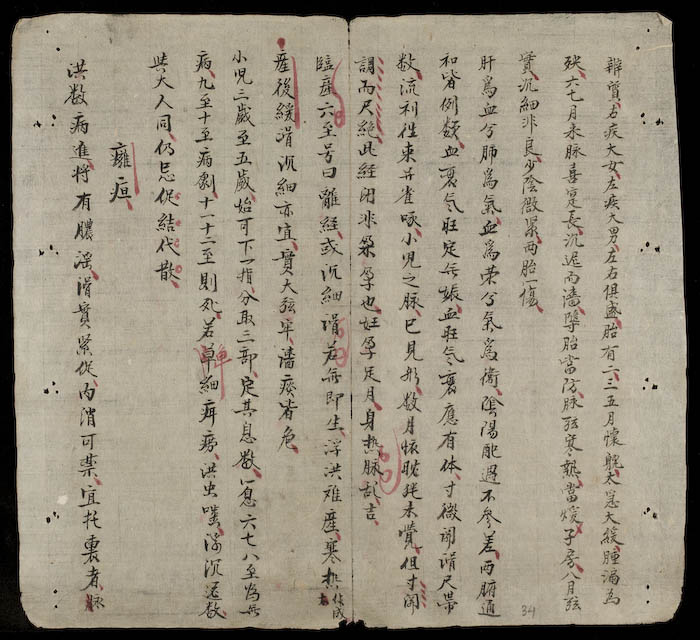 辨質右疾大女左疾大男左右俱盛胎有二三五月懷躭太急太緩腫漏為
殃六七月來脉喜寔長沉遲而濇墮胎當防脉弦寒熱當煖子房八月弦
實沉細非良少陰微緊兩胎一傷
肝為血兮肺為氣血為荣兮氣為衛陰陽配遇不參差兩臟通
和皆例類血衰气旺定无娠血旺气衰應有体寸微関滑尺帶
数流利往來并雀啄小兒之脉已見形数月懷躭犹未覺但寸関
調而尺絶此経閉非荣孕也妊孕足月身热脉乱吉
臨產六至号曰離経或沉細滑若無即生浮洪难產寒热
產後緩滑沉細亦宜實大弦牢濇疾皆危
小兒三歲至五歲始可下一指分取三部定其息数一息六七八至為無
病九至十至病劇十一十二至則死若單細疳痨洪虫嗟浮沉遲数
與大人同仍忌促結代散
癰疽
洪数病進將有膿滛滑實緊促内消可禁宜托裏者脉
34